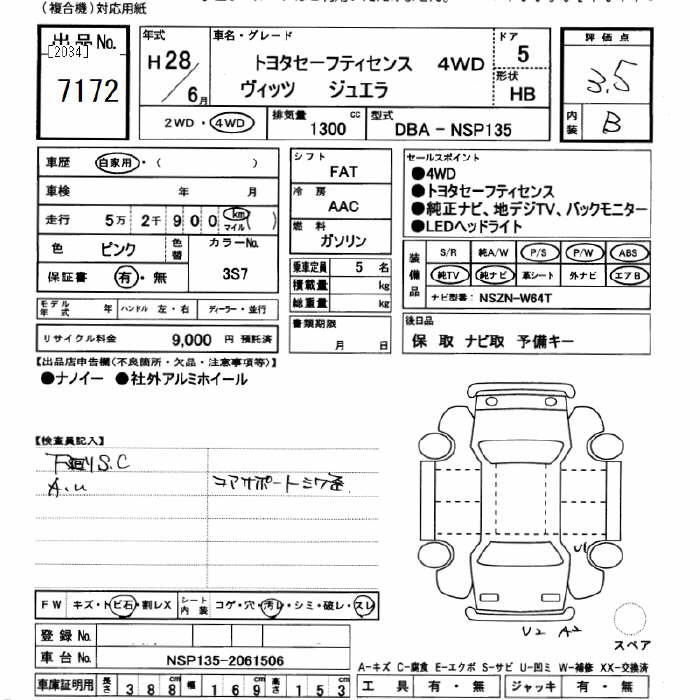 (複合機)対応用紙
出品No.
[2034]
7172
年式
H28/6月
車名・グレード
トヨタセーフティセンス 4WD
ヴィッツ ジュエラ
ドア
5
形状
HB
評価点
3.5
内装
B
2WD・4WD
排気量
1300 cc
型式
DBA-NSP135
車歴 自家用・( )
車検 年 月
走行 5万 2千 900 km マイル ( )
色 ピンク 色替 カラーNo. 3S7
保証書 有・無
モデル年式 年 ハンドル 左・右 ディーラー・並行
リサイクル料金 9,000 円 預託済
シフト
FAT
冷房
AAC
燃料
ガソリン
乗車定員 5 名
積載量 kg
総重量 kg
書類期限
月 日
セールスポイント
●4WD
●トヨタセーフティセンス
●純正ナビ、地デジTV、バックモニター
●LEDヘッドライト
装備品
S/R 純A/W P/S P/W ABS
純TV 純ナビ 革シート 外ナビ エアB
ナビ型番: NSZN-W64T
後日品
保 取 ナビ取 予備キー
【出品店申告欄(不良箇所・欠品・注意事項等)】
●ナノイー ●社外アルミホイール
【検査員記入】
下廻りS.C
A.u
コアサポートミワ歪
FW キズ・トビ石・割レX シート内装 コゲ・穴・汚レ・シミ・破レ・スレ
登録No.
車台No. NSP135-2061506
車庫証明用 長さ 388cm 幅 169cm 高さ 153cm
U1
U2 A2
スペア
A-キズ C-腐食 E-エクボ S-サビ U-凹ミ W-補修 XX-交換済
工具 有・無 ジャッキ 有・無